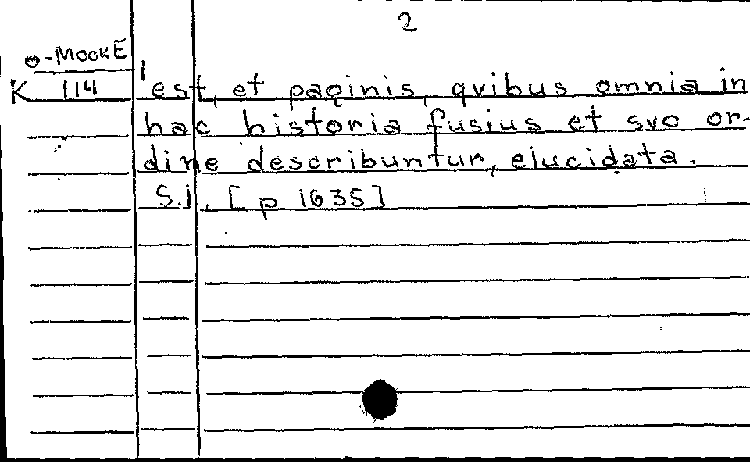 2
θ-MOCKE
K 114
est, et paginis, qvibus omnia in
hac historia fusius et svo or-
dine describuntur, elucidata.
S.l. [p 1635]